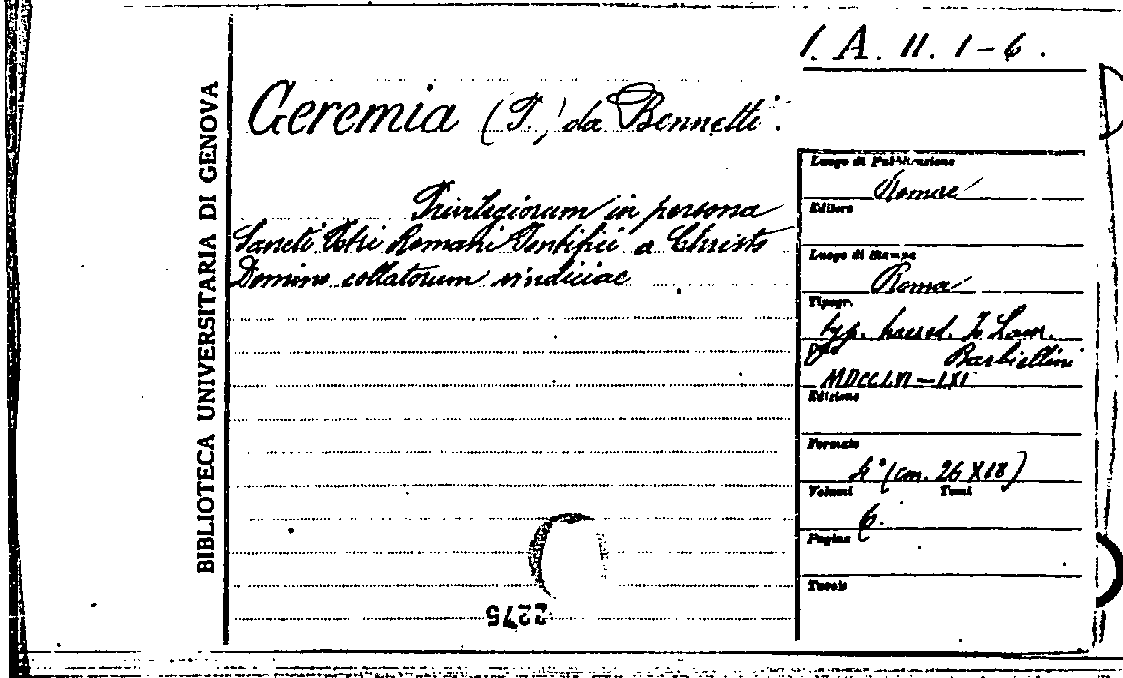 1. A. II. 1-6.
BIBLIOTECA UNIVERSITARIA DI GENOVA
Geremia (P.) da Bennetti.
Privilegiorum in persona
Sancti Petri Romani Pontifici a Christo
Domino collatorum vindiciae
2275
Luogo di Pubblicazione
Romae
Editore
Luogo di Stampa
Roma
Tipogr.
typ. haered. Jo Laur.
Barbiellini
MDCCLVI-LXI
Edizione
Formato
4° (cm. 26 X 18)
Volumi Tomi
6.
Pagine
Tavole